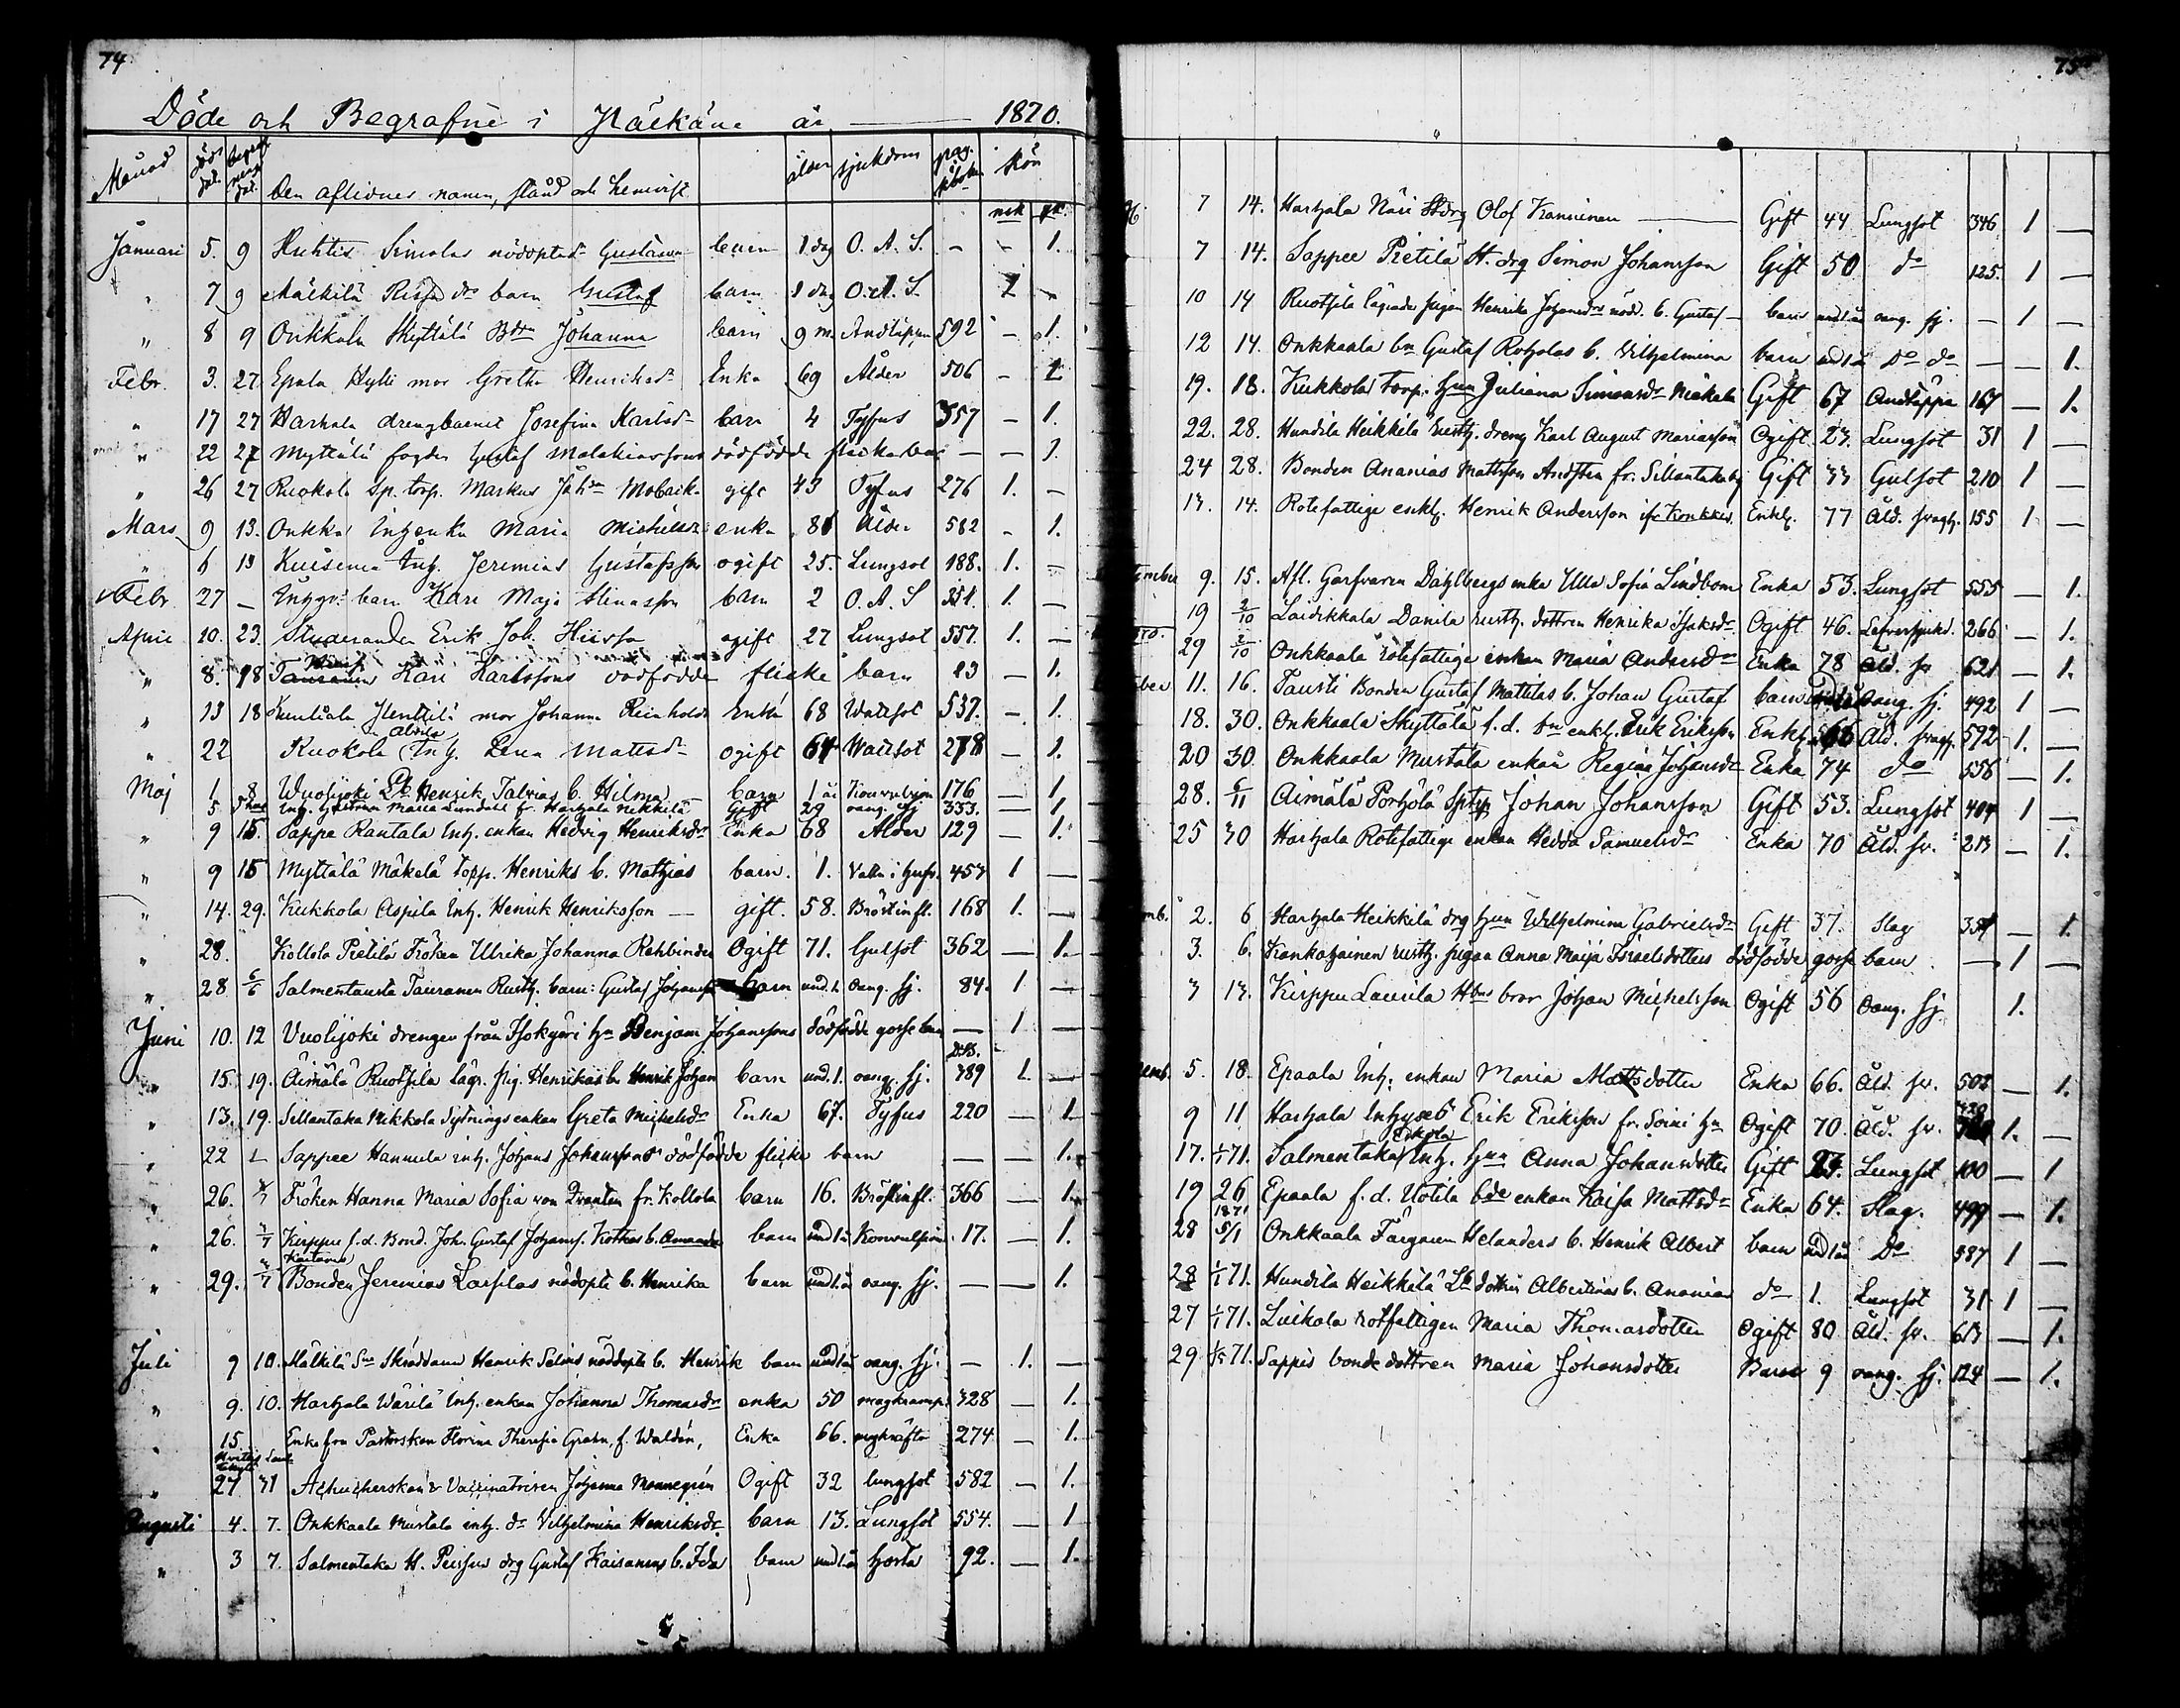 74
Döde och Begrafne i Pälkäne år 1870.
Månad död dat. begrafnings dat. Den aflidnes namn, stånd och hemvist ålder sjukdom pag. kboken kön
mk qk.
Januari 5. 9 Huhtis Simolas nödopted. Gustava barn 1 dag O. A. S. - - 1.
" 7 9 Mälkilä do barn Gustaf barn 1 dag O. A. S. 1 -
" 8 9 Onkkala Skyttälä Johanna barn 9 m. Andtäppa 592 - 1.
Febr. 3. 27 Epala Hylli mor Gretha Henriksdr Enka 69 Ålder 506 - 1
" 17 27 Harhala drengbarnet Josefina Karlsdr barn 4 Tyfus 357 - 1.
" 22 27 Myttälä fogden Gustaf Malakiassons dödfödde flickebarn - - 1
" 26 27 Ruokola Sp. torp. Markus gift 43 Tyfus 276 1. -
Mars 9 13. Onkkala Inhenka Maria Michelsdr enka 81 Ålder 582 - 1.
" 6 13 Kuisema Inh. Jeremias Gustafsson ogift 25. Lungsot 188. 1. -
Febr. 27 - barn Karl Maja Stinasson barn 2 O. A. S 351. 1. -
April 10. 23. Studeranden Erik Joh. ogift 27 Lungsot 557. 1. -
" 8. 18 Tauranen Karl Karlssons dödfödde flicke barn 23 - 1.
" 13 18 Kuuliala Penttilä mor Johanna Reinholdsdr Enka 68 Wattsot 537. - 1.
" 22 Ruokola Inh. Lena Mattsdr ogift 64 Wattsot 278 - 1.
Maj 1 8 Wuolijoki Henrik b. Hilma barn 1 år Konvulsion 176 - 1
5 Inh. hustrun Maria Lundell fr. Harhala Heikkilä Gift 29 oang. sj 353. - 1
" 9 15. Pappa Rantala Inh. enkan Hedvig Henriksdr Enka 68 Ålder 129 - 1.
" 9 15 Myttälä Mäkelä torp. Henriks b. Mathias barn. 1. Vatten i hufv. 453 1 -
" 14. 29. Kukkola Aspila Inh. Henrik Henriksson - gift. 58. Bröstinfl. 168 1. -
" 28. Kollola Pietilä Fröken Ulrika Johanna Rehbinder Ogift 71. Gulsot 362 - 1.
" 28 6/6 Salmentausta Tauranen Rusth. barn: Gustaf Johansson barn und. 1. oang. sj. 84. 1 -
Juni 10. 12 Vuolijoki drengen från Isokyrö hn Benjam Johanssons dödfödde gosse barn - 1 -
" 15. 19. Äimälä Ruotsila lägr. pig. Henrikas b. Henrik Johan barn und. 1. oang. sj. 389 1. -
" 13. 19. Sillantaka Nikkola Sytningsenkan Greta Michelsdr Enka 67. Tyfus 220 - 1.
" 22 - Sappee Hannula inh. Johans Johanssons dödfödde flicke barn - - 1.
" 26. 3/7 Fröken Hanna Maria Sofia von Qvanten fr. Kollola barn 16. Bröstinfl. 366 - 1.
" 26. 3/7 Kirppu f.d. Bond. Joh. Gustaf Johanss. Kothas b. Amanda barn und 1 å Konvulsion 17. - 1.
" 29. 3/7 Bonden Jeremias Larplas nödopte b. Henrika barn und 1. år oang. sj. - - 1.
Juli 9 10. Mälkilä Skräddaren Henrik Salins nöddopte b. Henrik barn und 1 å oang. sj. - 1. -
" 9. 10. Harhala Wärilä Inh. enkan Johanna Thomasdr enka 50 magkramp. 328 - 1.
" 15 Enkefru Pastorskan Florina Theresia Grahn, f. Waldén, Enka 66. magkräfta 274 - 1.
" 27 31 Achucherskan & Vaccinatrisen Johanna Mannegren Ogift 32 lungsot 582 - 1.
Augusti 4. 7. Onkkaala Mustala inh. dr Vilhelmina Henriksdr barn 13. Lungsot 554. - 1
" 3 7. Salmentaka H. Peissus drg Gustaf Kaisanens b. Ida barn und 1. å hosta 92. - 1.
75
7 14. Harhala Näri Stdrg Olof Kanninen - Gift 44 Lungsot 346 1 -
7 14. Sappee Pietilä St. drg Simon Johansson Gift 50 do 125. 1 -
10 14 Ruotsila lägrade pigan Henrika Johansdrs nödd. b. Gustaf - barn und 1. år oang. sj. - 1 -
12 14. Onkkaala bn Gustaf Roholas b. Vilhelmina barn und 1 å Do do - - 1.
19. 18. Kukkola Torp. hun Juliana Simonsdr Mäkelä Gift 67 Andtäppa 167 - 1.
22. 28. Hundila Heikkilä rusth. dreng Karl August Mariasson Ogift 23. Lungsot 31 1 -
24 28. Bonden Ananias Mattsson Andsten fr. Sillantaka by Gift 33 Gulsot 210 1 -
13. 14. Rotefattige enkl. Henrik Andersson ifr Konkkis. Enkl. 77 Åld. svagh. 155 1 -
9. 15. Afl. Garfvaren Dahlbergs enka Ulla Sofia Lindbom Enka 53. Lungsot 555 - 1.
19 2/10 Laidikkala Danila rusth. dottren Henrika Isaksdr Ogift 46. Lefversjukd. 266 - 1.
29 2/10 Onkkaala rotefattige enkan Maria Andersdr Enka 78 Åld. sv 621 - 1.
11. 16. Tausti Bonden Gustaf Mattilas b. Johan Gustaf barn oang. sj. 492 1 -
18. 30. Onkkaala Skyttälä f. d. bn enkl. Erik Eriksson Enkl. Åld. svagh. 592 1. -
20 30 Onkkaala Mustala enkan Regina Johansdr Enka 74 do 556 - 1.
28. 6/11 Äimälä Porhölä Sptp Johan Johansson Gift 53. Lungsot 404 1 -
25 30 Harhala Rotefattige enkan Hedda Samuelsdr Enka 70 Åld. sv. 213 - 1.
2. 6 Harhala Heikkilä drg hun Wilhelmina Gabrielsdr Gift 37. Slag 354 - 1.
3. 6. Kankahainen rusth. pigan Anna Maija Israelsdotters dödfödde gosse barn - 1 -
3 13. Kirppu Laurila Hbns bror Johan Michelsson Ogift 56 oang. sj 1.
5. 18. Epaala Inh. enkan Maria Mattsdotter Enka 66. Åld. sv. 503 - 1.
9 11 Harhala Inhyses Erik Eriksson fr. Soini hn Ogift 70. Åld. sv. 1. -
17. 1/1 71. Salmentaka Eskola Inh. hun Anna Johansdotter Gift Lungsot 100 - 1
19 26 Epaala f. d. Uotila bde enkan Kaisa Mattsdr Enka 64. Slag. 499 - 1.
28 1871 5/1 Onkkaala Färgaren Helanders b. Henrik Albert barn und 1 år Do 587 1 -
28 1/1 71. Hundila Heikkilä Lb dottern Albertinas b. Ananias do 1. Lungsot 31 1 -
27 1/1 71. Luikala rotfattigen Maria Thomasdotter Ogift 80 Åld. sv. 613 - 1.
29 71. Sappis bonde dottren Maria Johansdotter Barn 9 oang. sj. 124 - 1.